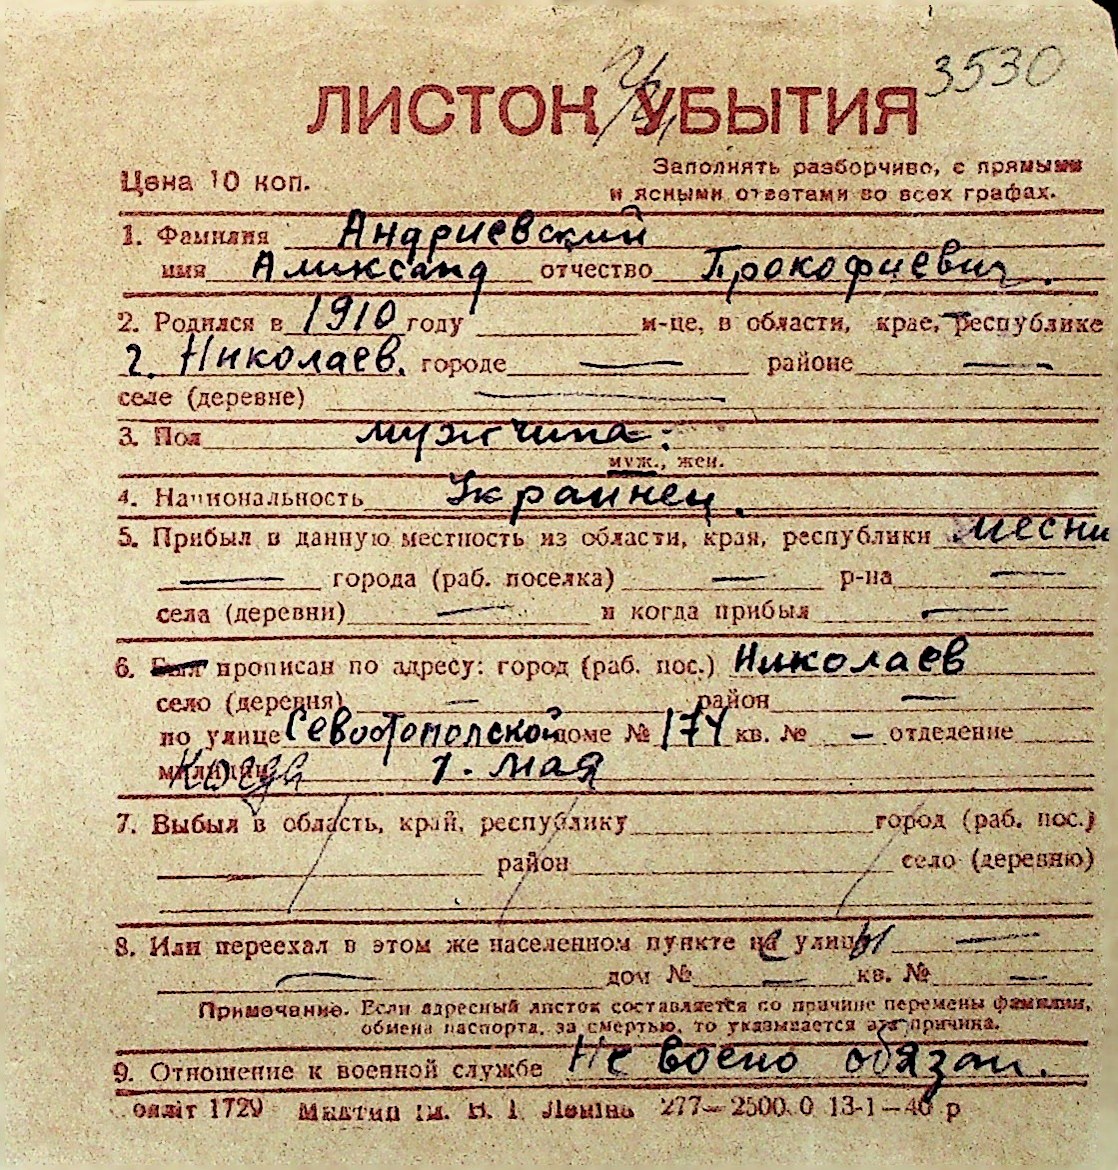 3530
ЛИСТОК УБЫТИЯ
Цена 10 коп.
Заполнять разборчиво, с прямыми
и ясными ответами во всех графах.
1. Фамилия Андриевский
имя Аликсанд отчество Прокофиевич.
2. Родился в 1910 году м-це, в области, крае, республике
г. Николаев. городе — районе —
селе (деревне) —
3. Пол мужчина.
муж., жен.
4. Национальность Украинец.
5. Прибыл в данную местность из области, края, республики месни
— города (раб. поселка) — р-на —
села (деревни) — и когда прибыл —
6. Был прописан по адресу: город (раб. пос.) Николаев
село (деревня) — район —
по улице Севостополской доме № 174 кв. № — отделение
милиции Когда 1. мая
7. Выбыл в область, край, республику город (раб. пос.)
район село (деревню)
8. Или переехал в этом же населенном пункте с улицы —
— дом № — кв. № —
Примечание. Если адресный листок составляется по причине перемены фамилии,
обмена паспорта, за смертью, то указывается эта причина.
9. Отношение к военной службе Не военo обязан.
1729 им. В. І. Леніна 277—2500.0 13-1—40 р